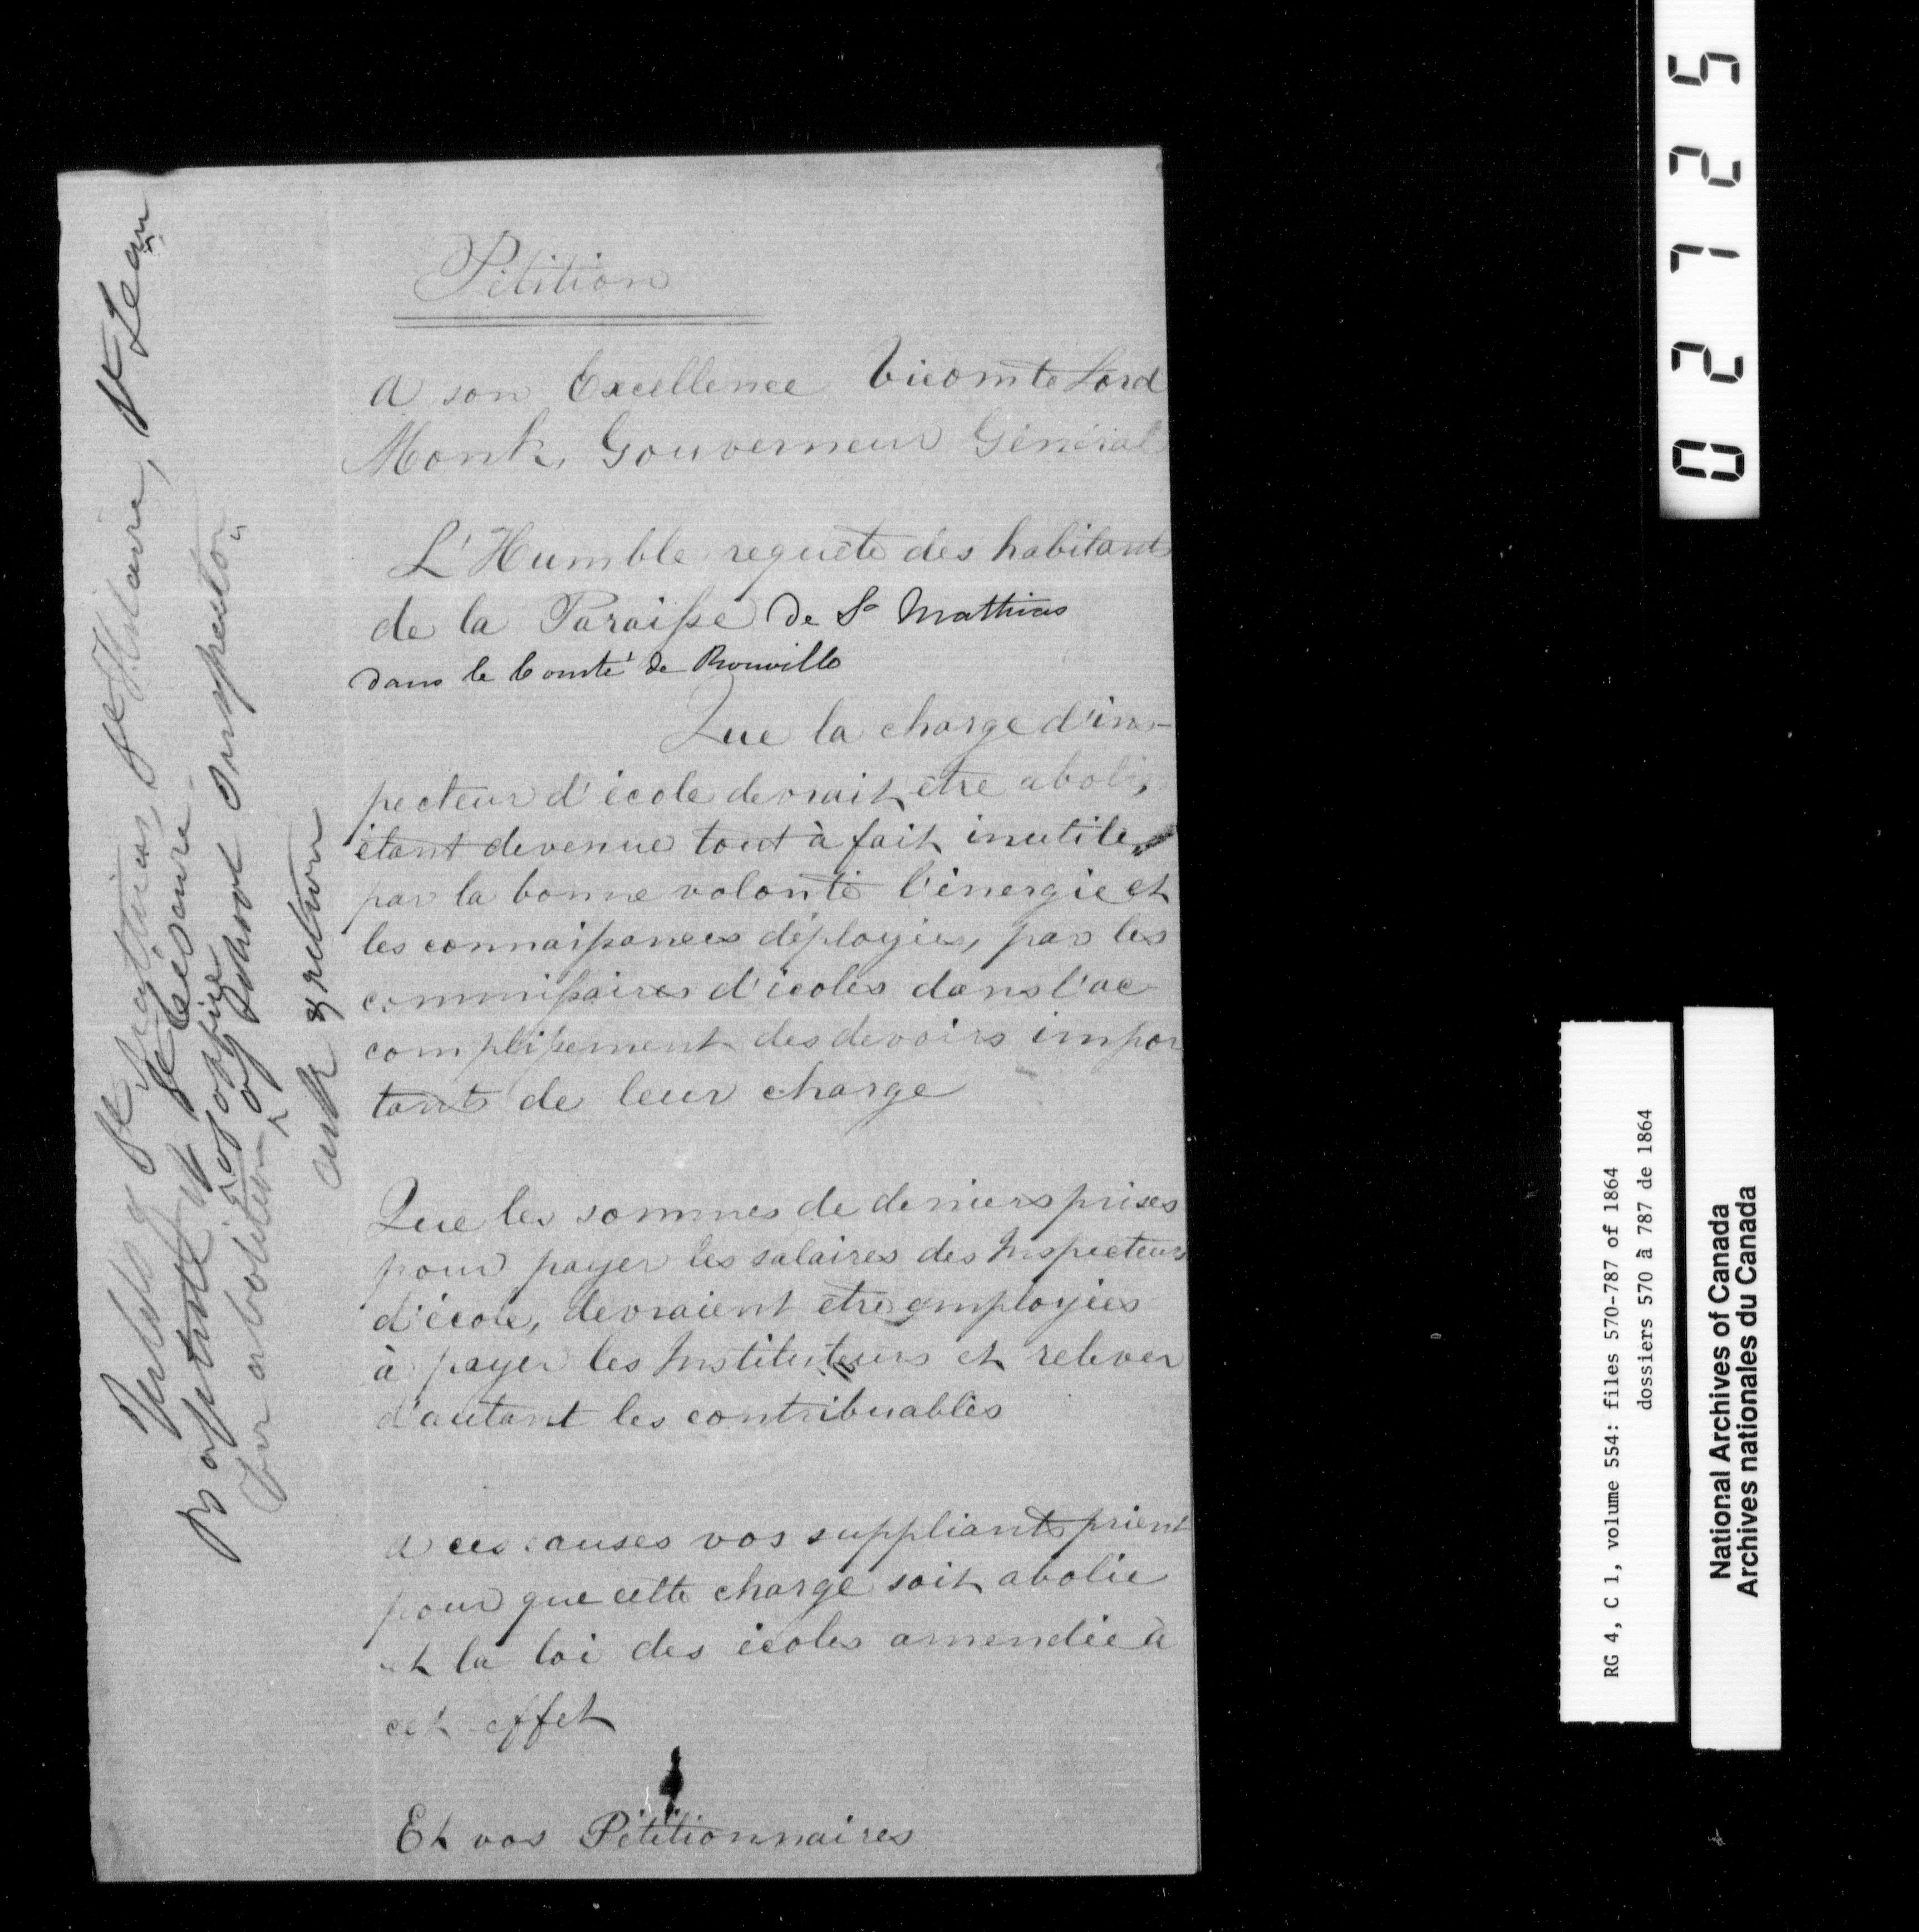 Pétition
A son Excellence Vicomte Lord
Monk, Gouverneur Général
L'Humble requête des habitants
de la Paroisse de St Mathias
dans le Comté de Rouville
Que la charge d'ins-
pecteur d'école devrait être abolie,
étant devenue tout à fait inutile,
par la bonne volonté l'énergie et
les connaissances déployées, par les
commissaires d'écoles dans l'ac
complissement des devoirs impor
tants de leur charge
Que les sommes de deniers prises
pour payer les salaires des Inspecteurs
d'école, devraient être employées
à payer les Instituteurs et relever
d'autant les contribuables
A ces causes vos suppliants prient
pour que cette charge soit abolie
et la loi des écoles amendée à
cet effet
Et vos Pétitionnaires
St Mathias, St Hilaire, St Jean
Baptiste et St Césaire
for abolition of office of School Inspector
ask return
02725
RG 4, C 1, volume 554: files 570-787 of 1864
dossiers 570 à 787 de 1864
National Archives of Canada
Archives nationales du Canada